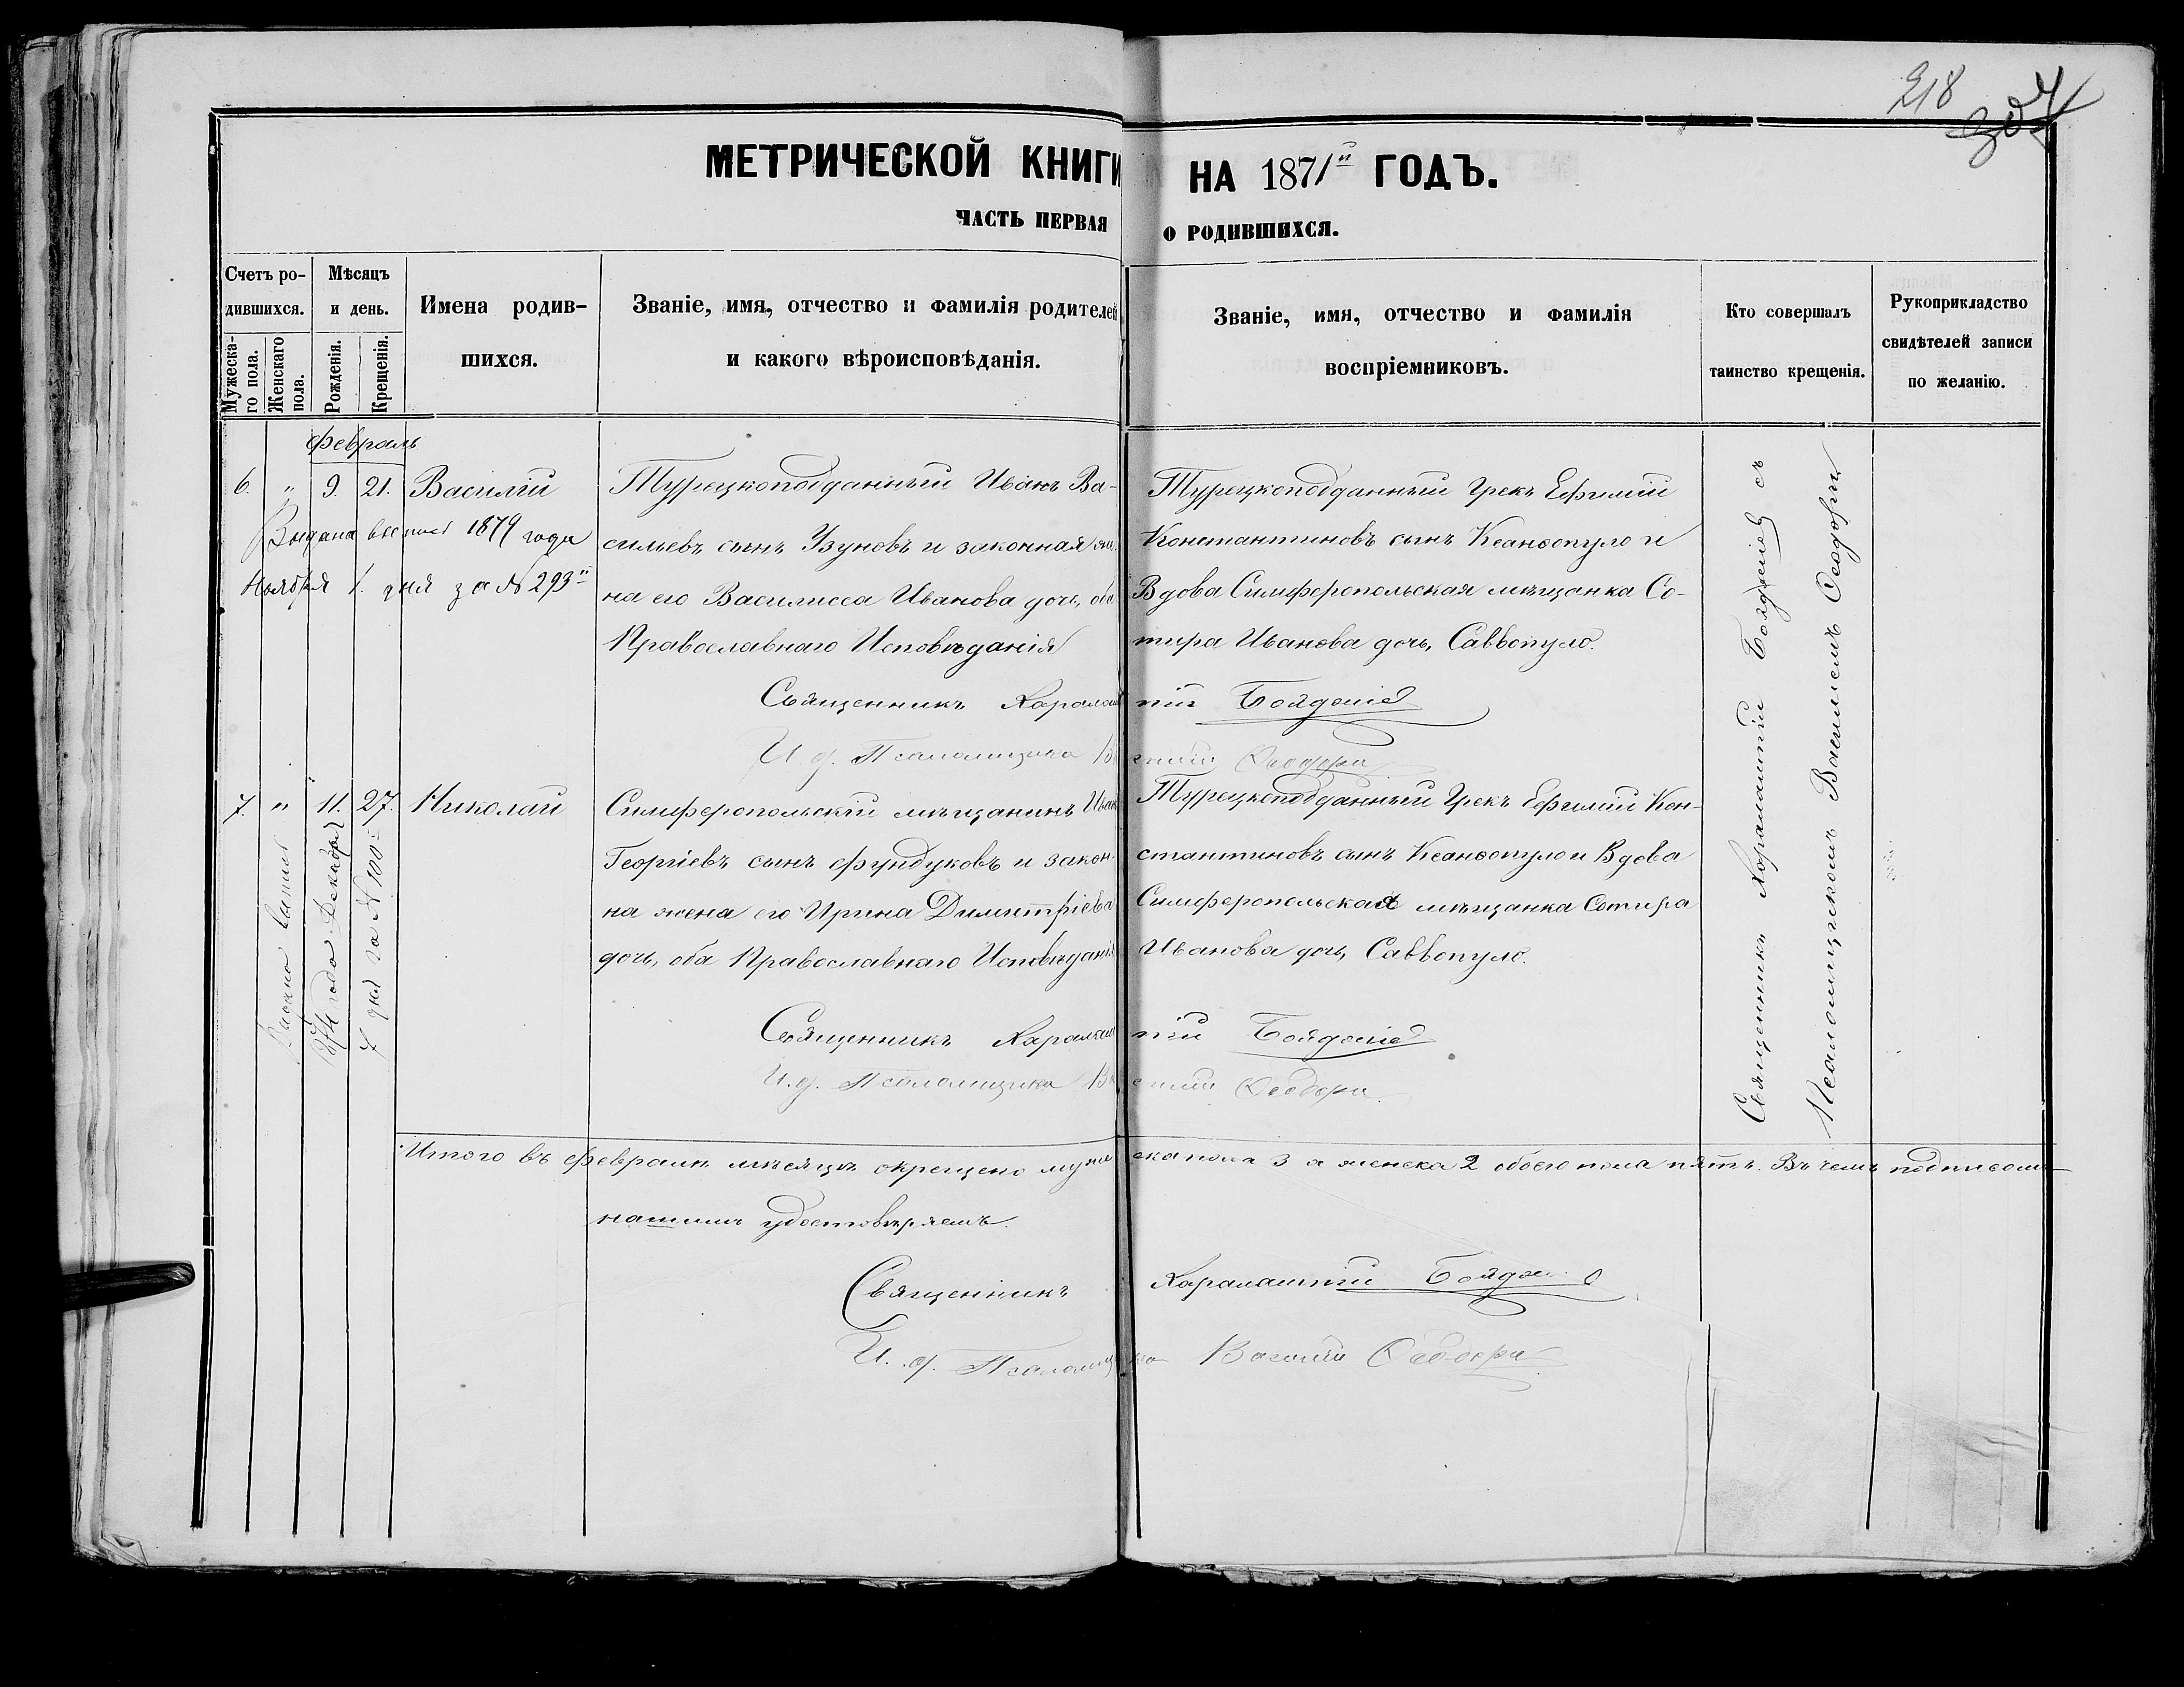 218
МЕТРИЧЕСКОЙ КНИГИ НА 1871й ГОДЪ.
ЧАСТЬ ПЕРВАЯ О РОДИВШИХСЯ.
Счетъ ро-
дившихся.
Мужеска-
го пола.
Женскаго
пола.
Мѣсяцъ
и день.
Рожденія.
Крещенія.
Имена родив-
шихся.
Званіе, имя, отчество и фамилія родителей
и какого вѣроисповѣданія.
Званіе, имя, отчество и фамилія
воспріемниковъ.
Кто совершалъ
таинство крещенія.
Рукоприкладство
свидѣтелей записи
по желанію.
Февраль
6. " 9. 21. Василій
Выдана выпись 1879 года
Ноября 1. дня за № 293й
Турецкоподданный Иванъ Ва-
сильевъ сынъ Узуновъ и законная же-
на его Василисса Иванова дочь, оба
Православнаго Исповѣданія
Турецкоподданный Грекъ Ефимій
Константиновъ сынъ Ксанфопуло и
Вдова Симферопольская мѣщанка Со-
тира Иванова дочь, Саввопуло.
Священникъ Харалампій
И. д. Псаломщика Василій Феодори
7. " 11. 27. Николай
Выдана выпись
1874 года Декабря
7 дня за № 100
Симферопольскій мѣщанинъ Иванъ
Георгіевъ сынъ Фундуковъ и закон-
на жена его Ирина Димитріева
дочь, оба Православнаго Исповѣданія
Турецкоподданный Грекъ Ефимій Кон-
стантиновъ сынъ Ксанфопуло и Вдова
Симферопольская мѣщанка Сотира
Иванова дочь, Саввопуло.
Священникъ Харалампій
И. д. Псаломщика Василій Феодори
Священникъ Харалампій съ
Псаломщикомъ Василіемъ Феодори
Итого въ Февралѣ мѣсяцѣ окрещено мужеска пола 3 а женска 2 обоего пола пять. Въ чемъ подписомъ
нашимъ удостовѣряемъ.
Священникъ Харалампій
И. д. Псаломщика Василій Феодори